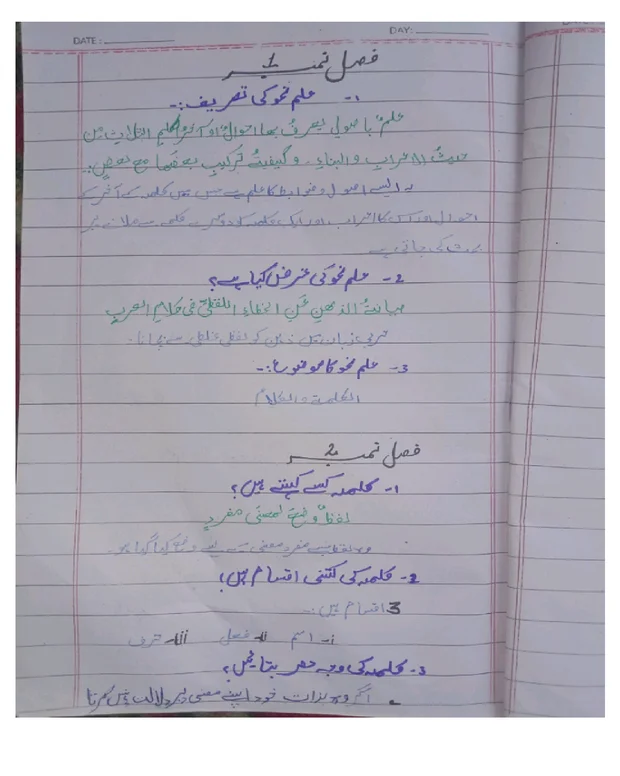 DATE: DAY:
فصل نمبر 1
1- علم نحو کی تعریف:-
علمٌ باصولٍ یعرفُ بھا احوالُ اواخر الکلم الثلاث من
حیثُ الاعراب والبناء، و کیفیتُ ترکیبِ بعضھا مع بعضٍ۔
یہ ایسے اصول و ضوابط کا علم ہے جس میں کلمہ کے آخر کے
احوال اور اس کا اعراب اور ایک کلمہ کا دوسرے کلمے سے ملانے پر
بحث کی جاتی ہے
2- علم نحو کی غرض کیا ہے؟
صیانۃُ الذھنِ عَنِ الخطاءِ اللفظی فی کلامِ العربِ
عربی زبان میں ذہن کو لفظی غلطی سے بچانا۔
3- علم نحو کا موضوع:-
الکلمۃ والکلامُ
فصل نمبر 2
1- کلمہ کسے کہتے ہیں؟
لفظٌ وضع لمعنی مفردٍ
وہ لفظ ہے مفرد معنی کے لیے وضع کیا گیا ہو۔
2- کلمہ کی کتنی اقسام ہیں؟
3 اقسام ہیں:-
i- اسم ii- فعل iii- حرف
3- کلمہ کی وجہ حصر بتائیں؟
اگر وہ بذات خود اپنے معنی پر دلالت نہیں کرتا